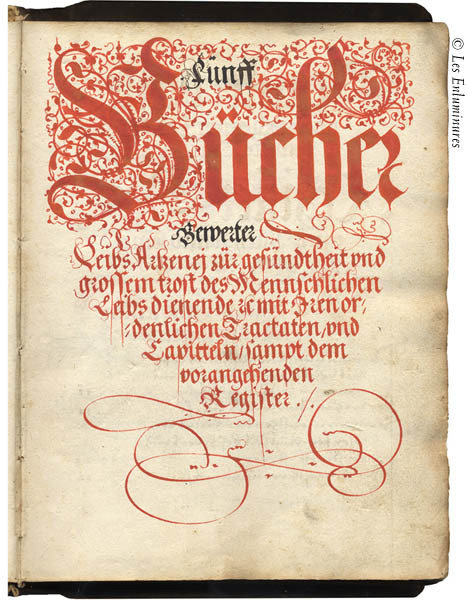 Fünff
Bücher
Bewerter
Leibs Artzenej zür gesündtheit vnd
grossem trost des Mennschlichen
Leibs dienende ꝛc mit Jren or-
-denlichen Tractaten, vnd
Capitteln / sampt dem
vorangehenden
Register ./.
© Les Enluminures